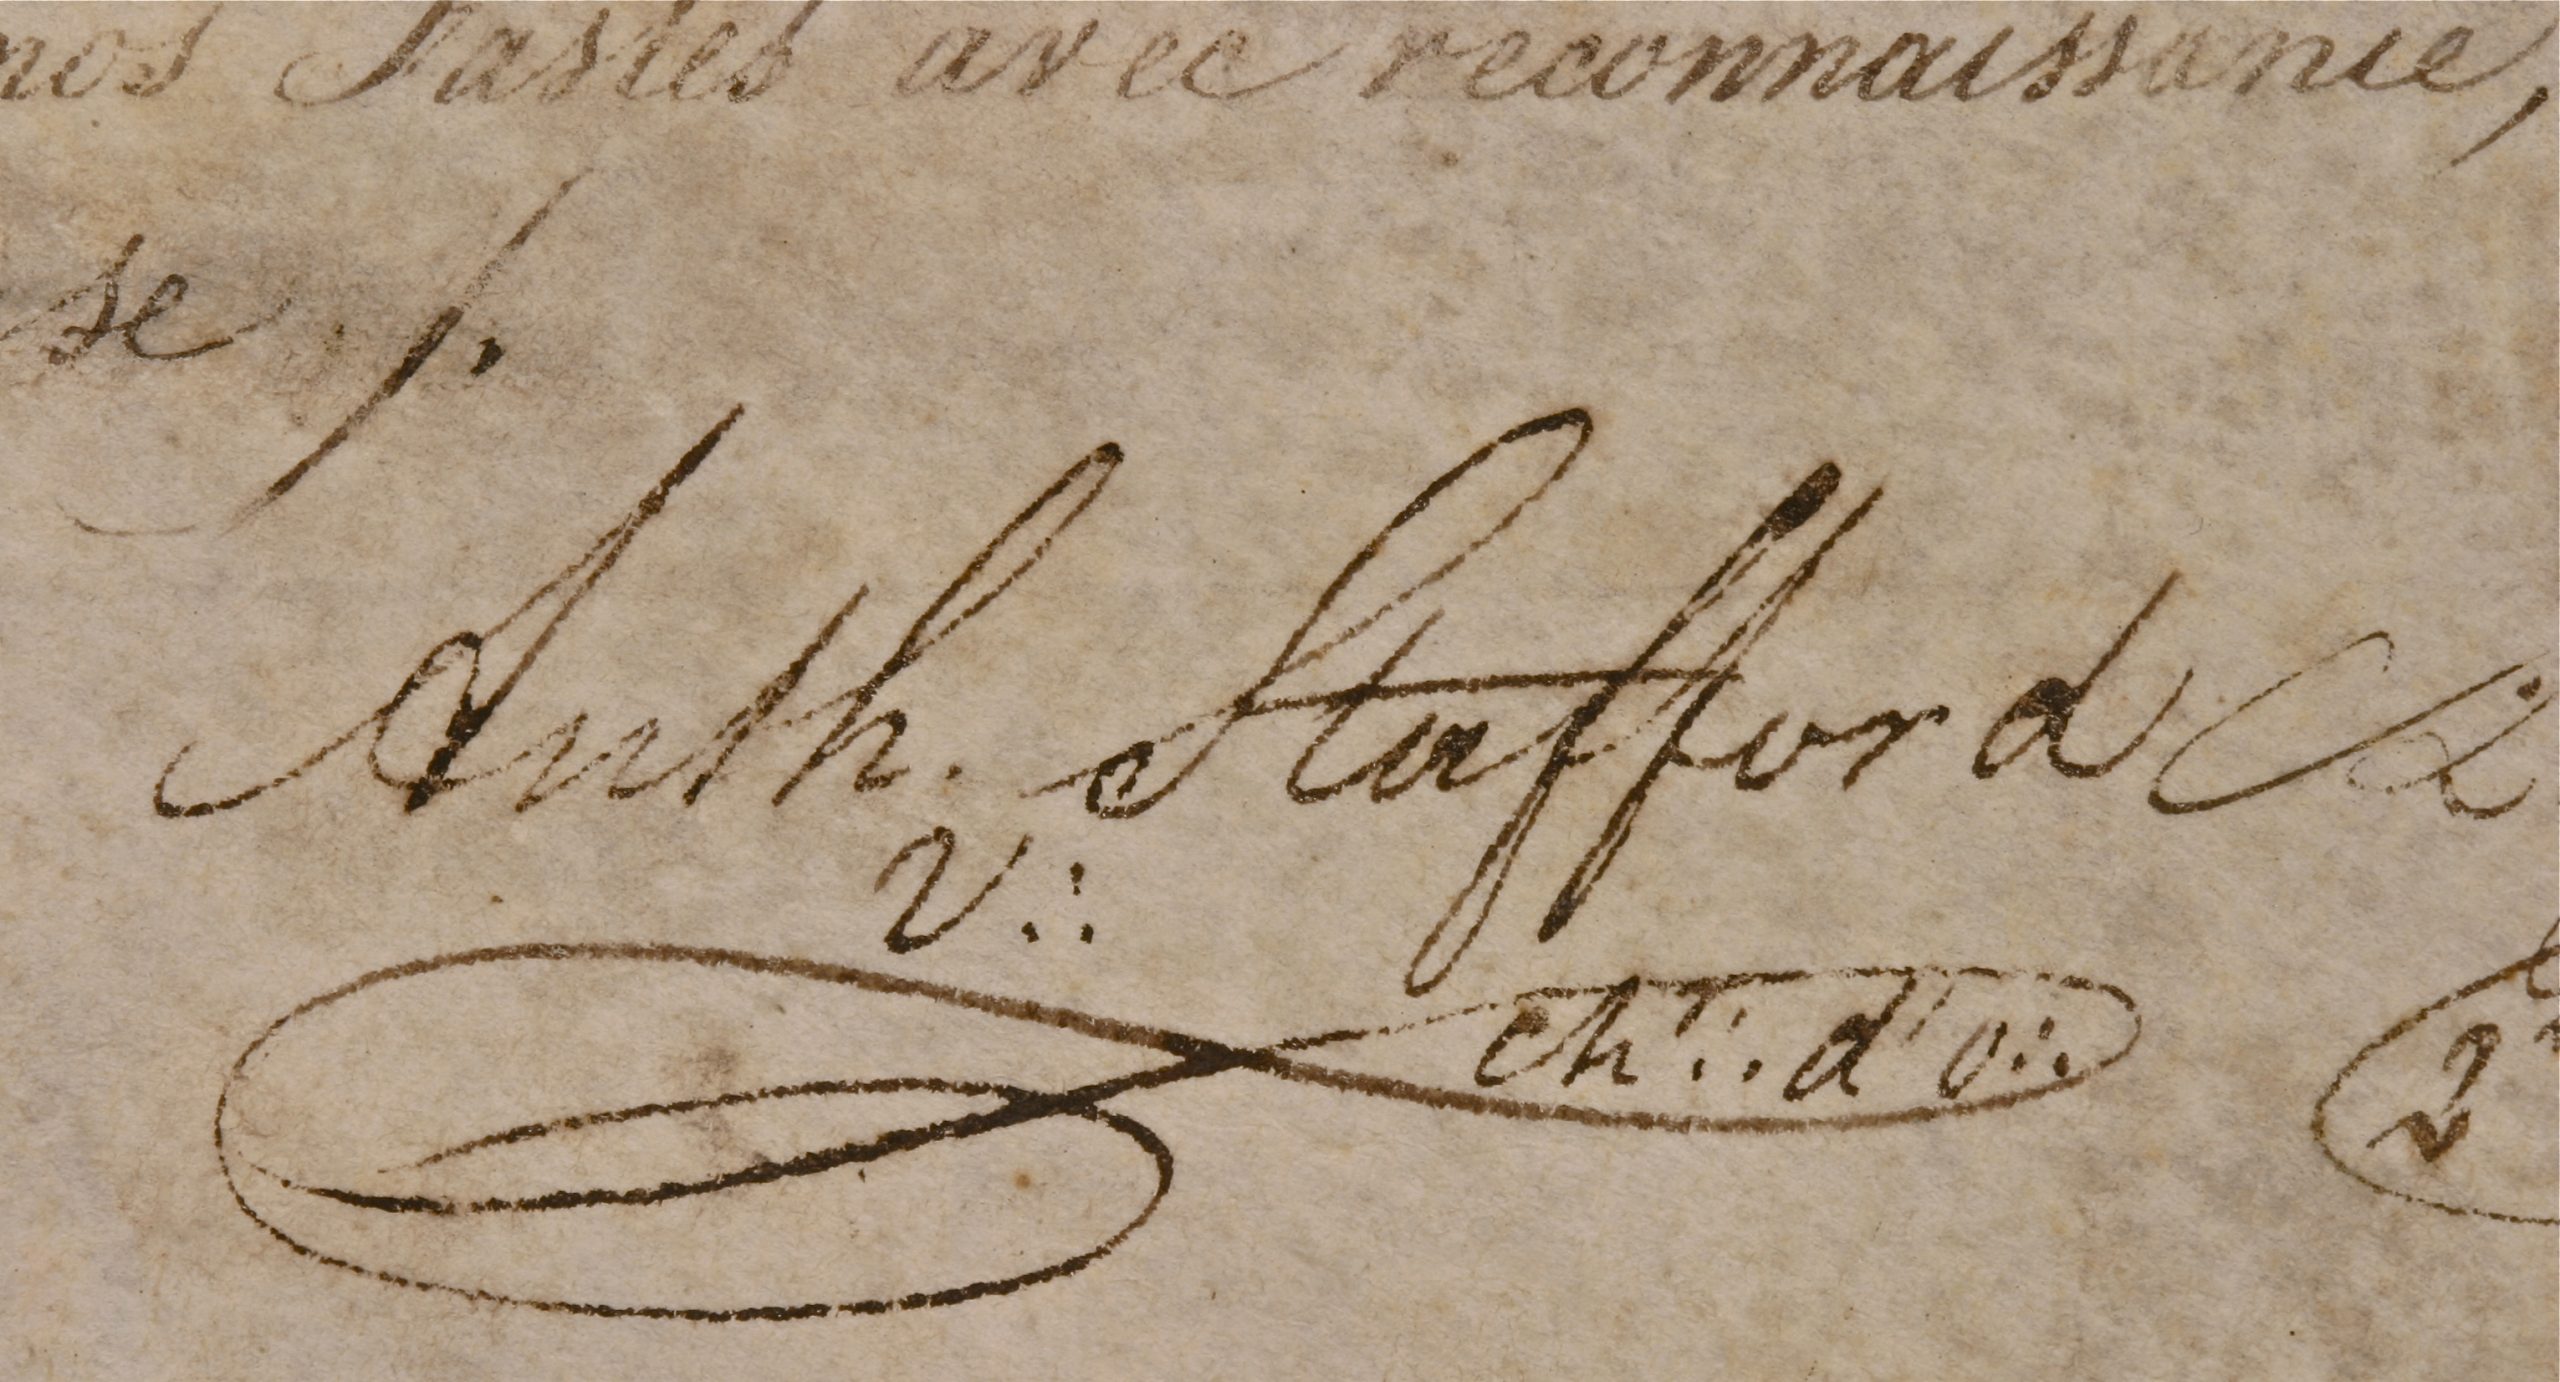 nos Fastes avec reconnaissance,
se /.
Anth. Stafford
V∴
ch∴ d'o∴